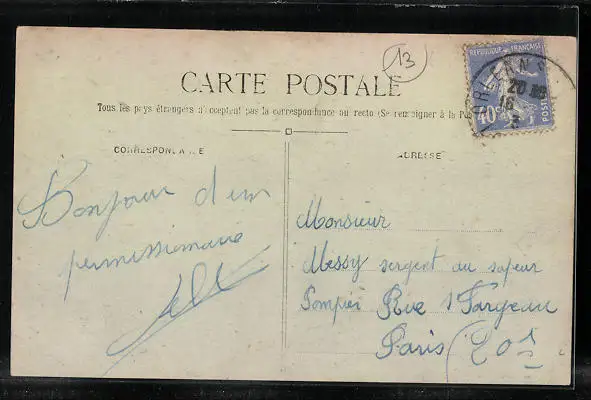 13
CARTE POSTALE
RÉPUBLIQUE FRANÇAISE
40c
POSTES
ORLEANS
20
16
Tous les pays étrangers n'acceptent pas la correspondance au recto (Se renseigner à la Pos
CORRESPONDANCE
ADRESSE
Bonjour d'un
permissionnaire
Monsieur
Messy sergent au sapeur
Pompier Rue St Fargeau
Paris (20e